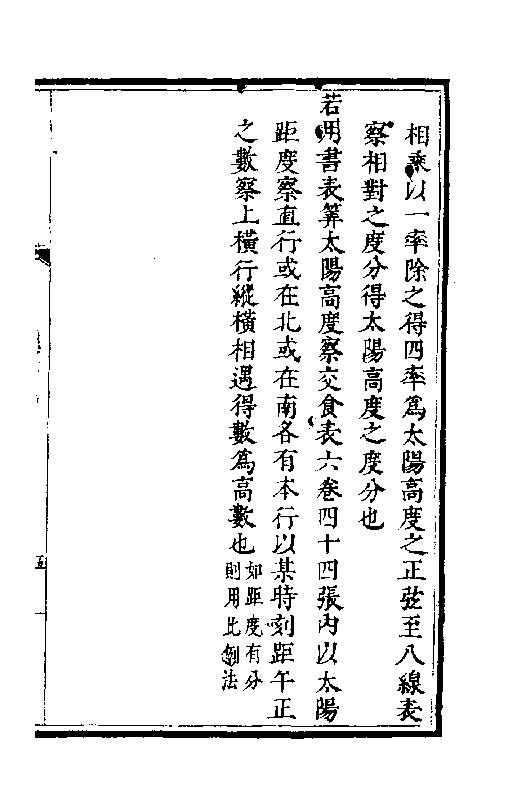 相乘以一率除之得四率為太陽高度之正弦至八線表
察相對之度分得太陽高度之度分也
若用書表筭太陽高度察交食表六卷四十四張內以太陽
距度察直行或在北或在南各有本行以某時刻距午正
之數察上橫行縱橫相遇得數為高數也如距度有分
則用比例法